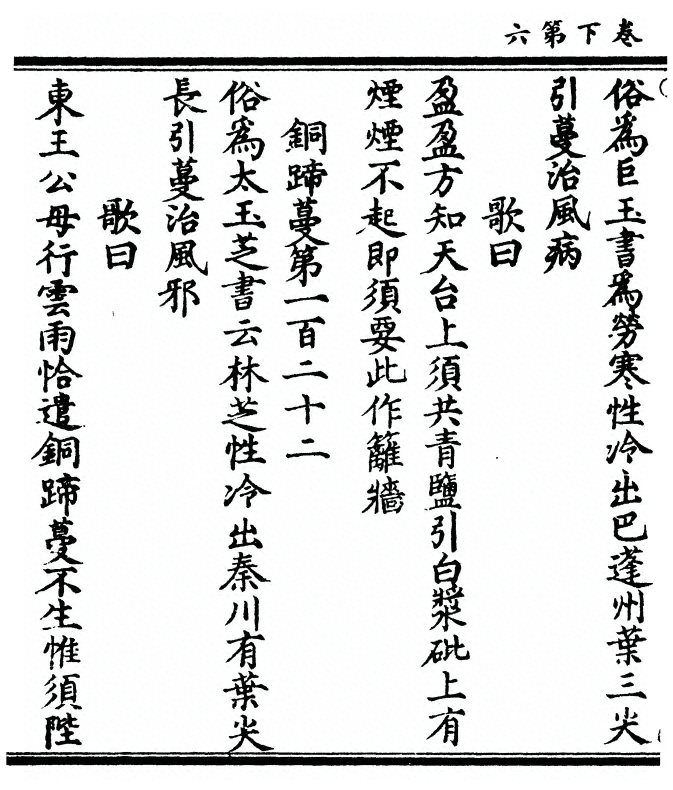 卷下第六
俗為巨玉書為勞寒性冷出巴蓬州葉三尖
引蔓治風病
歌曰
盈盈方知天台上須共青鹽引白漿砒上有
煙煙不起即須要此作籬牆
銅蹄蔓第一百二十二
俗為太玉芝書云林芝性冷出秦川有葉尖
長引蔓治風邪
歌曰
東王公母行雲雨恰遣銅蹄蔓不生惟須陛